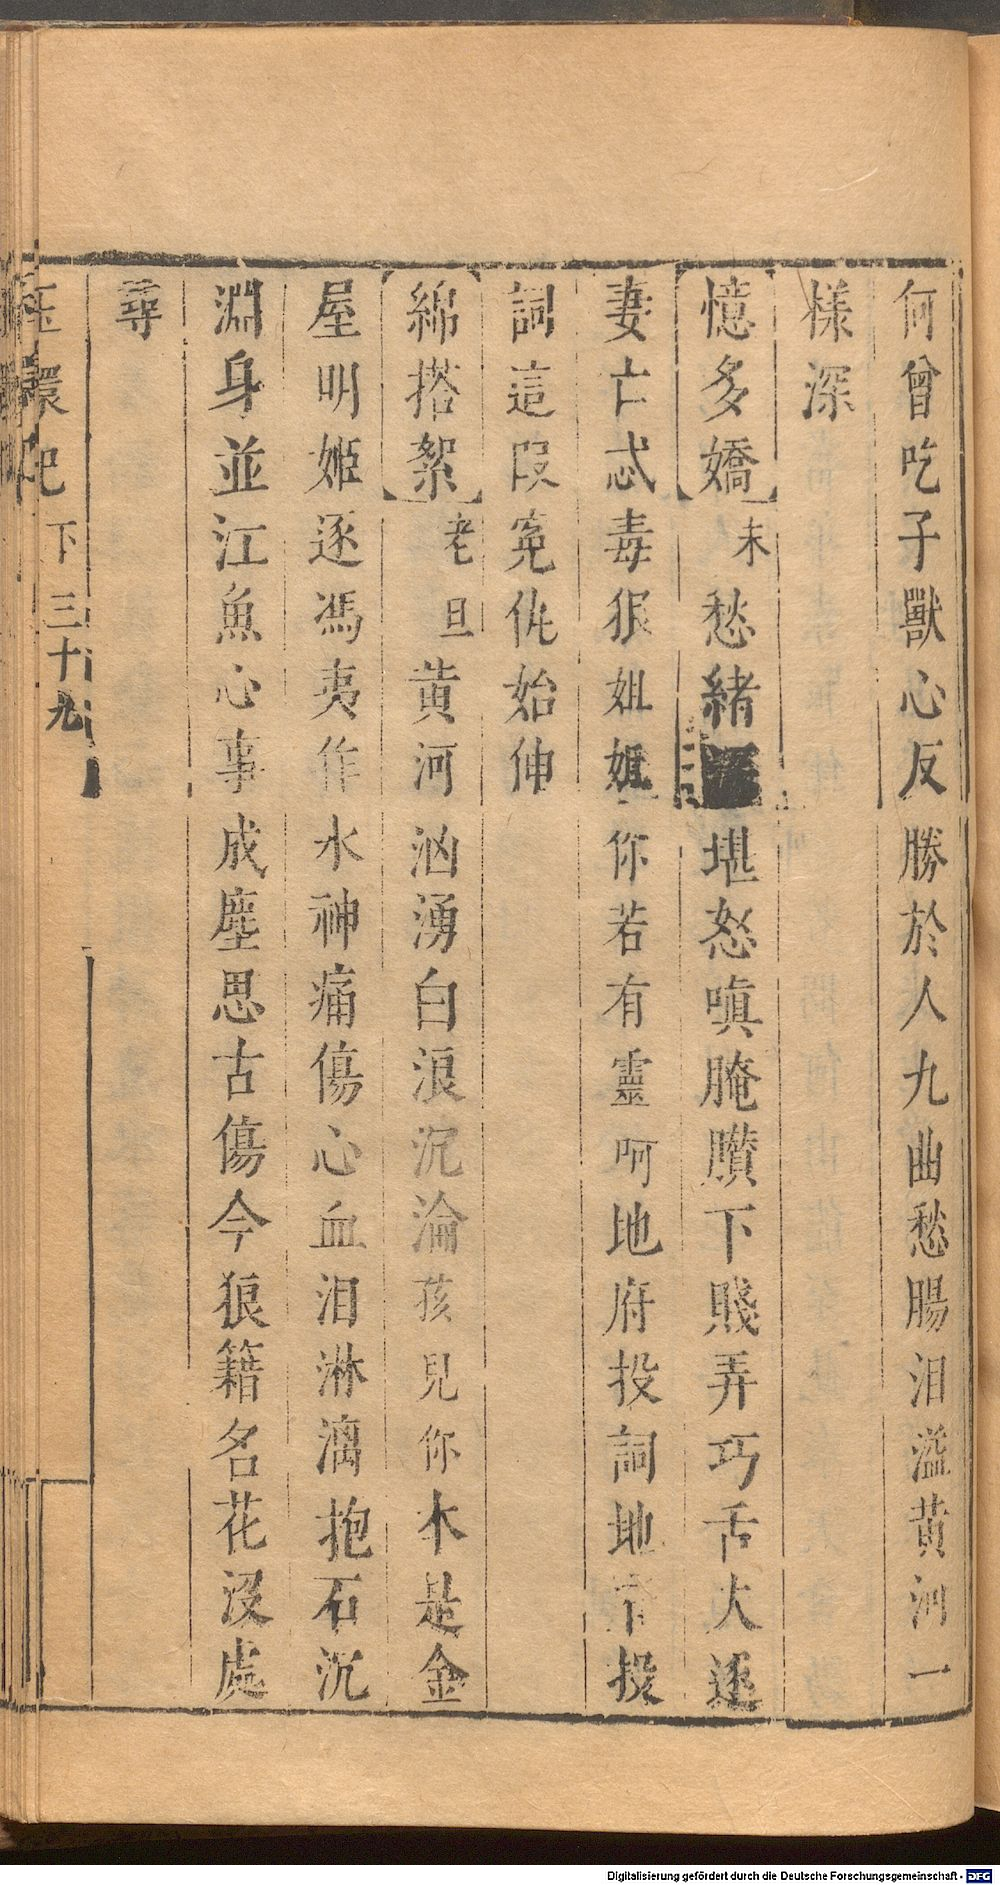 何曾吃子獸心反勝於人九曲愁腸泪溢黃河一
樣深
憶多嬌末愁緒堪怒嗔腌臢下賤弄巧舌大逐
妻亡忒毒狠姐姐你若有靈呵地府投詞地府投
詞這段寃仇始伸
綿搭絮老旦黃河汹湧白浪沉淪孩兒你本是金
屋明姬逐馮夷作水神痛傷心血泪淋漓抱石沉
淵身並江魚心事成塵思古傷今狼籍名花沒處
尋
玉環記 下 三十九
Digitalisierung gefördert durch die Deutsche Forschungsgemeinschaft - DFG